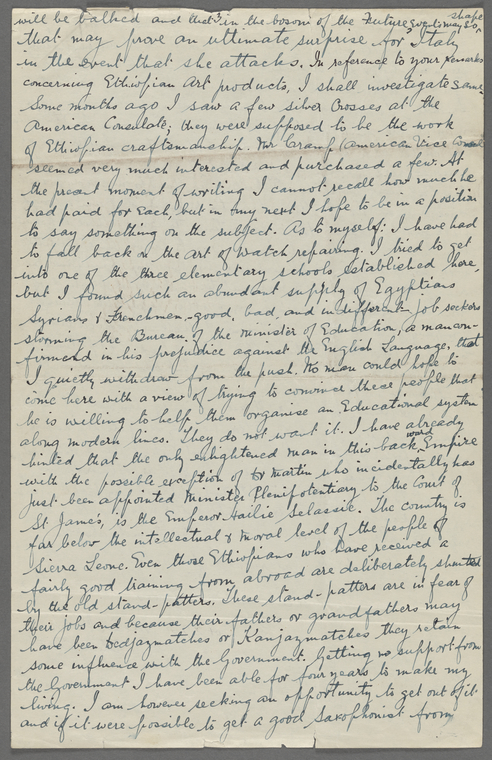 will be balked and that in the bosom of the Future, Events may so shape
that may prove an ultimate surprise for Italy
in the event that she attacks. In reference to your remarks
concerning Ethiopian Art products, I shall investigate same.
Some months ago I saw a few silver Crosses at the
American Consulate; they were supposed to be the work
of Ethiopian craftsmanship. Mr Cramp (American Vice Consul
seemed very much interested and purchased a few. At
the present moment of writing I cannot recall how much he
had paid for each, but in my next I hope to be in a position
to say something on the subject. As to myself: I have had
to fall back on the art of watch repairing. I tried to get
into one of the three elementary schools established here
but I found such an abundant supply of Egyptians
Syrians & Frenchmen - good, bad, and indifferent - job seekers
storming the Bureau of the minister of Education, a man con-
firmed in his prejudice against the English Language, that
I quietly withdrew from the push. No man could hope to
come here with a view of trying to convince these people that
he is willing to help them organise an Educational system
along modern lines. They do not want it. I have already
hinted that the only enlightened man in this backward Empire
with the possible exception of Dr Martin who incidentally has
just been appointed Minister Plenipotentiary to the Court of
St James, is the Emperor Hailie Selassie. The country is
far below the intellectual & moral level of the people of
Sierra Leone. Even those Ethiopians who have received a
fairly good training from abroad are deliberately shunted
by the old stand-patters. These stand-patters are in fear of
their jobs and because their fathers or grandfathers may
have been Dedjazmatches or Kanjazmatches they retain
some influence with the Government. Getting no support from
the Government I have been able for four years to make my
living. I am however seeking an opportunity to get out of it
and if it were possible to get a good saxophonist from